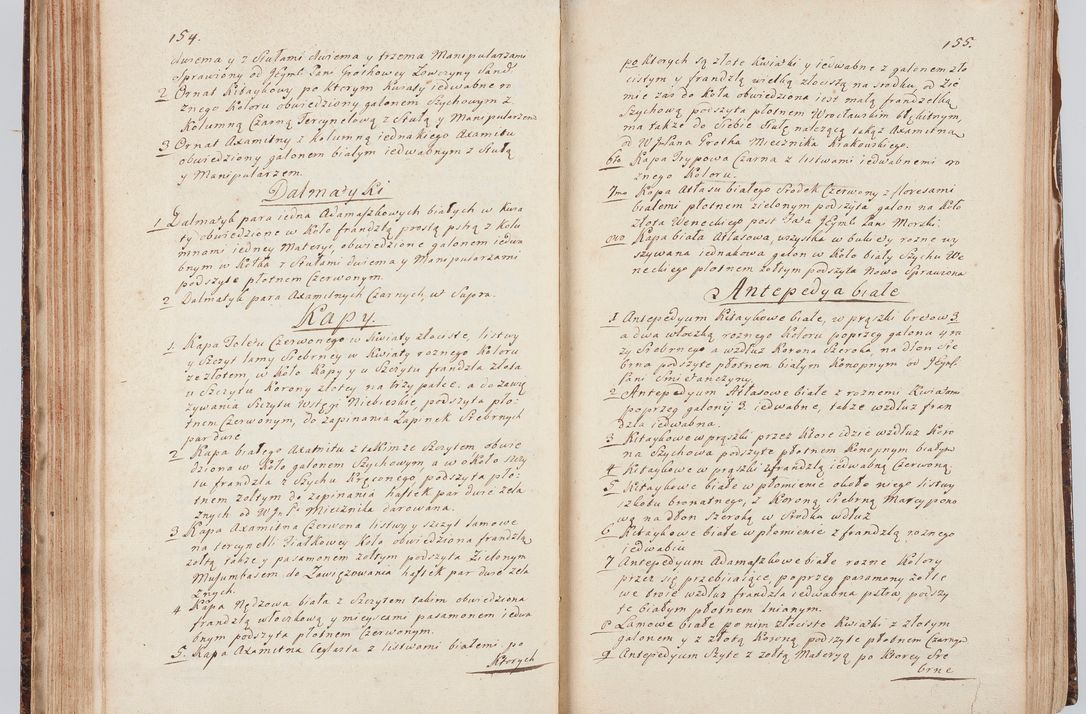 154.
dwiema y z Stułami dwiema y trzema Manipularzami
Sprawiony od JEymb Pani Grothowey Łowczyny Sand.
2 Ornat Kitaykowy po ktorym Kwiaty iedwabne ro
znego Koloru obwiedziony galonem Szychowym z
Kolumną Czarną Tercynelową z Stułą y Manipularzem
3 Ornat Axamitny z Kolumną iednakiego Axamitu
obwiedziony galonem białym iedwabnym z Stułą
y Manipularzem.
Dalmatyki
1 Dalmatyk para iedna Adamaszkowych białych w Kwia
ty obwiedzione w Koło frandzlą prostą pstrą z Kolu
mnami iedney Materyi, obwiedzione galonem iedwa
bnym w Kołka z Stułami dwiema y Manipularzami
podszyte płotnem Czerwonym.
2 Dalmatyk para Axamitnych Czarnych, ut Supra.
Kapy
1. Kapa Taletu Czerwonego w Kwiaty złociste, listwy
y Szczyt lamy Srebrney w Kwiaty roznego Koloru
ze złotem, w Koło Kapy y w Szczytu frandzla złota
u Szczytu Korony złotey na trzy palce. a do zawią
zywania Szczytu Wstęgi Niebieskie podszyta pło
tnem Czerwonym, do zapinania Zapinek Srebrnych
par dwie
2 Kapa białego Axamitu z takimże Szczytem obwie
dziona w Koło galonem Szychowym, a w Koło szczy
tu frandzla z Szychu Kręconego podszyta płó
tnem zołtym do zapinania haftek par dwie zela
znych od WJP Miecznika darowana.
3 Kapa Axamitna Czerwona listwy y szczyt lamowe
na tercynelli Fiałkowey Koło obwiedziona frandzlą
zołtą także y pasamonem zołtym podszyta Zielonym
Musumbasem do Zawięzowania haftek par dwie zela
znych.
4 Kapa Nędzowa biała z Szczytem takim obwiedziona
frandzlą włoczkową y mieyscami pasamonem iedwa
bnym podszyta płotnem Czerwonym.
5. Kapa Axamitna Ceglasta z listwami białemi po
Ktorych
155.
po Ktorych są złote Kwiatki y iedwabne z galonem zło
cistym y frandzlą wielką złocistą na srodku, od Zie
mie zas do Koła obwiedziona iest małą frandzelką
Szychową podszyta płotnem Wrocławskim błękitnym,
ma także do Siebie Stułę nalezącą takąż Axamitną
od WJPana Grotha Miecznika Krakowskiego.
6to Kapa Trypowa Czarna z listwami iedwabnemi ro
znego Koloru.
7mo Kapa Atłasu białego Srodek Czerwony z floresami
białemi płotnem zielonym podszyta galon na Koło
złota Weneckiego post Fata JEymb Pani Morski
8vo Kapa biała Atłasowa, wszystka w bukiety rozne wy
szywana iednakowa galon w Koło biały Szychu We
neckiego płotnem zołtym podszyta Nowo Sprawiona
Antepedya białe
1 Antepedyum Kitaykowe białe, w prązki bretow 3
a dwa włoczką roznego Koloru poprzeg galonu y m
zy Srebrnego a wzdłuz Korona Szeroka, na dłon Sre
brna podszyte płotnem białym Konopnym od JEymb
Pani Smietanczyny.
2 Antepedyum Atłasowe białe z roznemi Kwiatami
poprzeg galony 3 iedwabne, także wzdłuz fran
dzla iedwabna.
3 Kitaykowe w prązki przez Ktore idzie wzdłuz Koro
na Szychowa podszyte płotnem Konopnym białym
4 Kitaykowe w prązki z frandzlą iedwabną Czerwoną.
5 Kitaykowe białe w płomienie około niego listwy
szkoku bronatnego, z Koroną Srebrną Marcypono
wą na dłon Szeroką w Srodku wdłuz
6 Kitaykowe białe w płomienie z frandzlą roznego
iedwabiu
7 Antepedyum Adamaszkowe białe rozne Kolory
przez się przebiiaiące, poprzeg pasamony zołte
we troie wzdłuz frandzla iedwabna pstra, podszy
te białym płotnem lnianym.
8 Lamowe białe po nim złociste Kwiatki z złotym
galonem y z złotą Koroną podszyte płotnem Czarnym
9 Antepedyum Szyte z zołtą Materyą po Ktorey Sre
brne